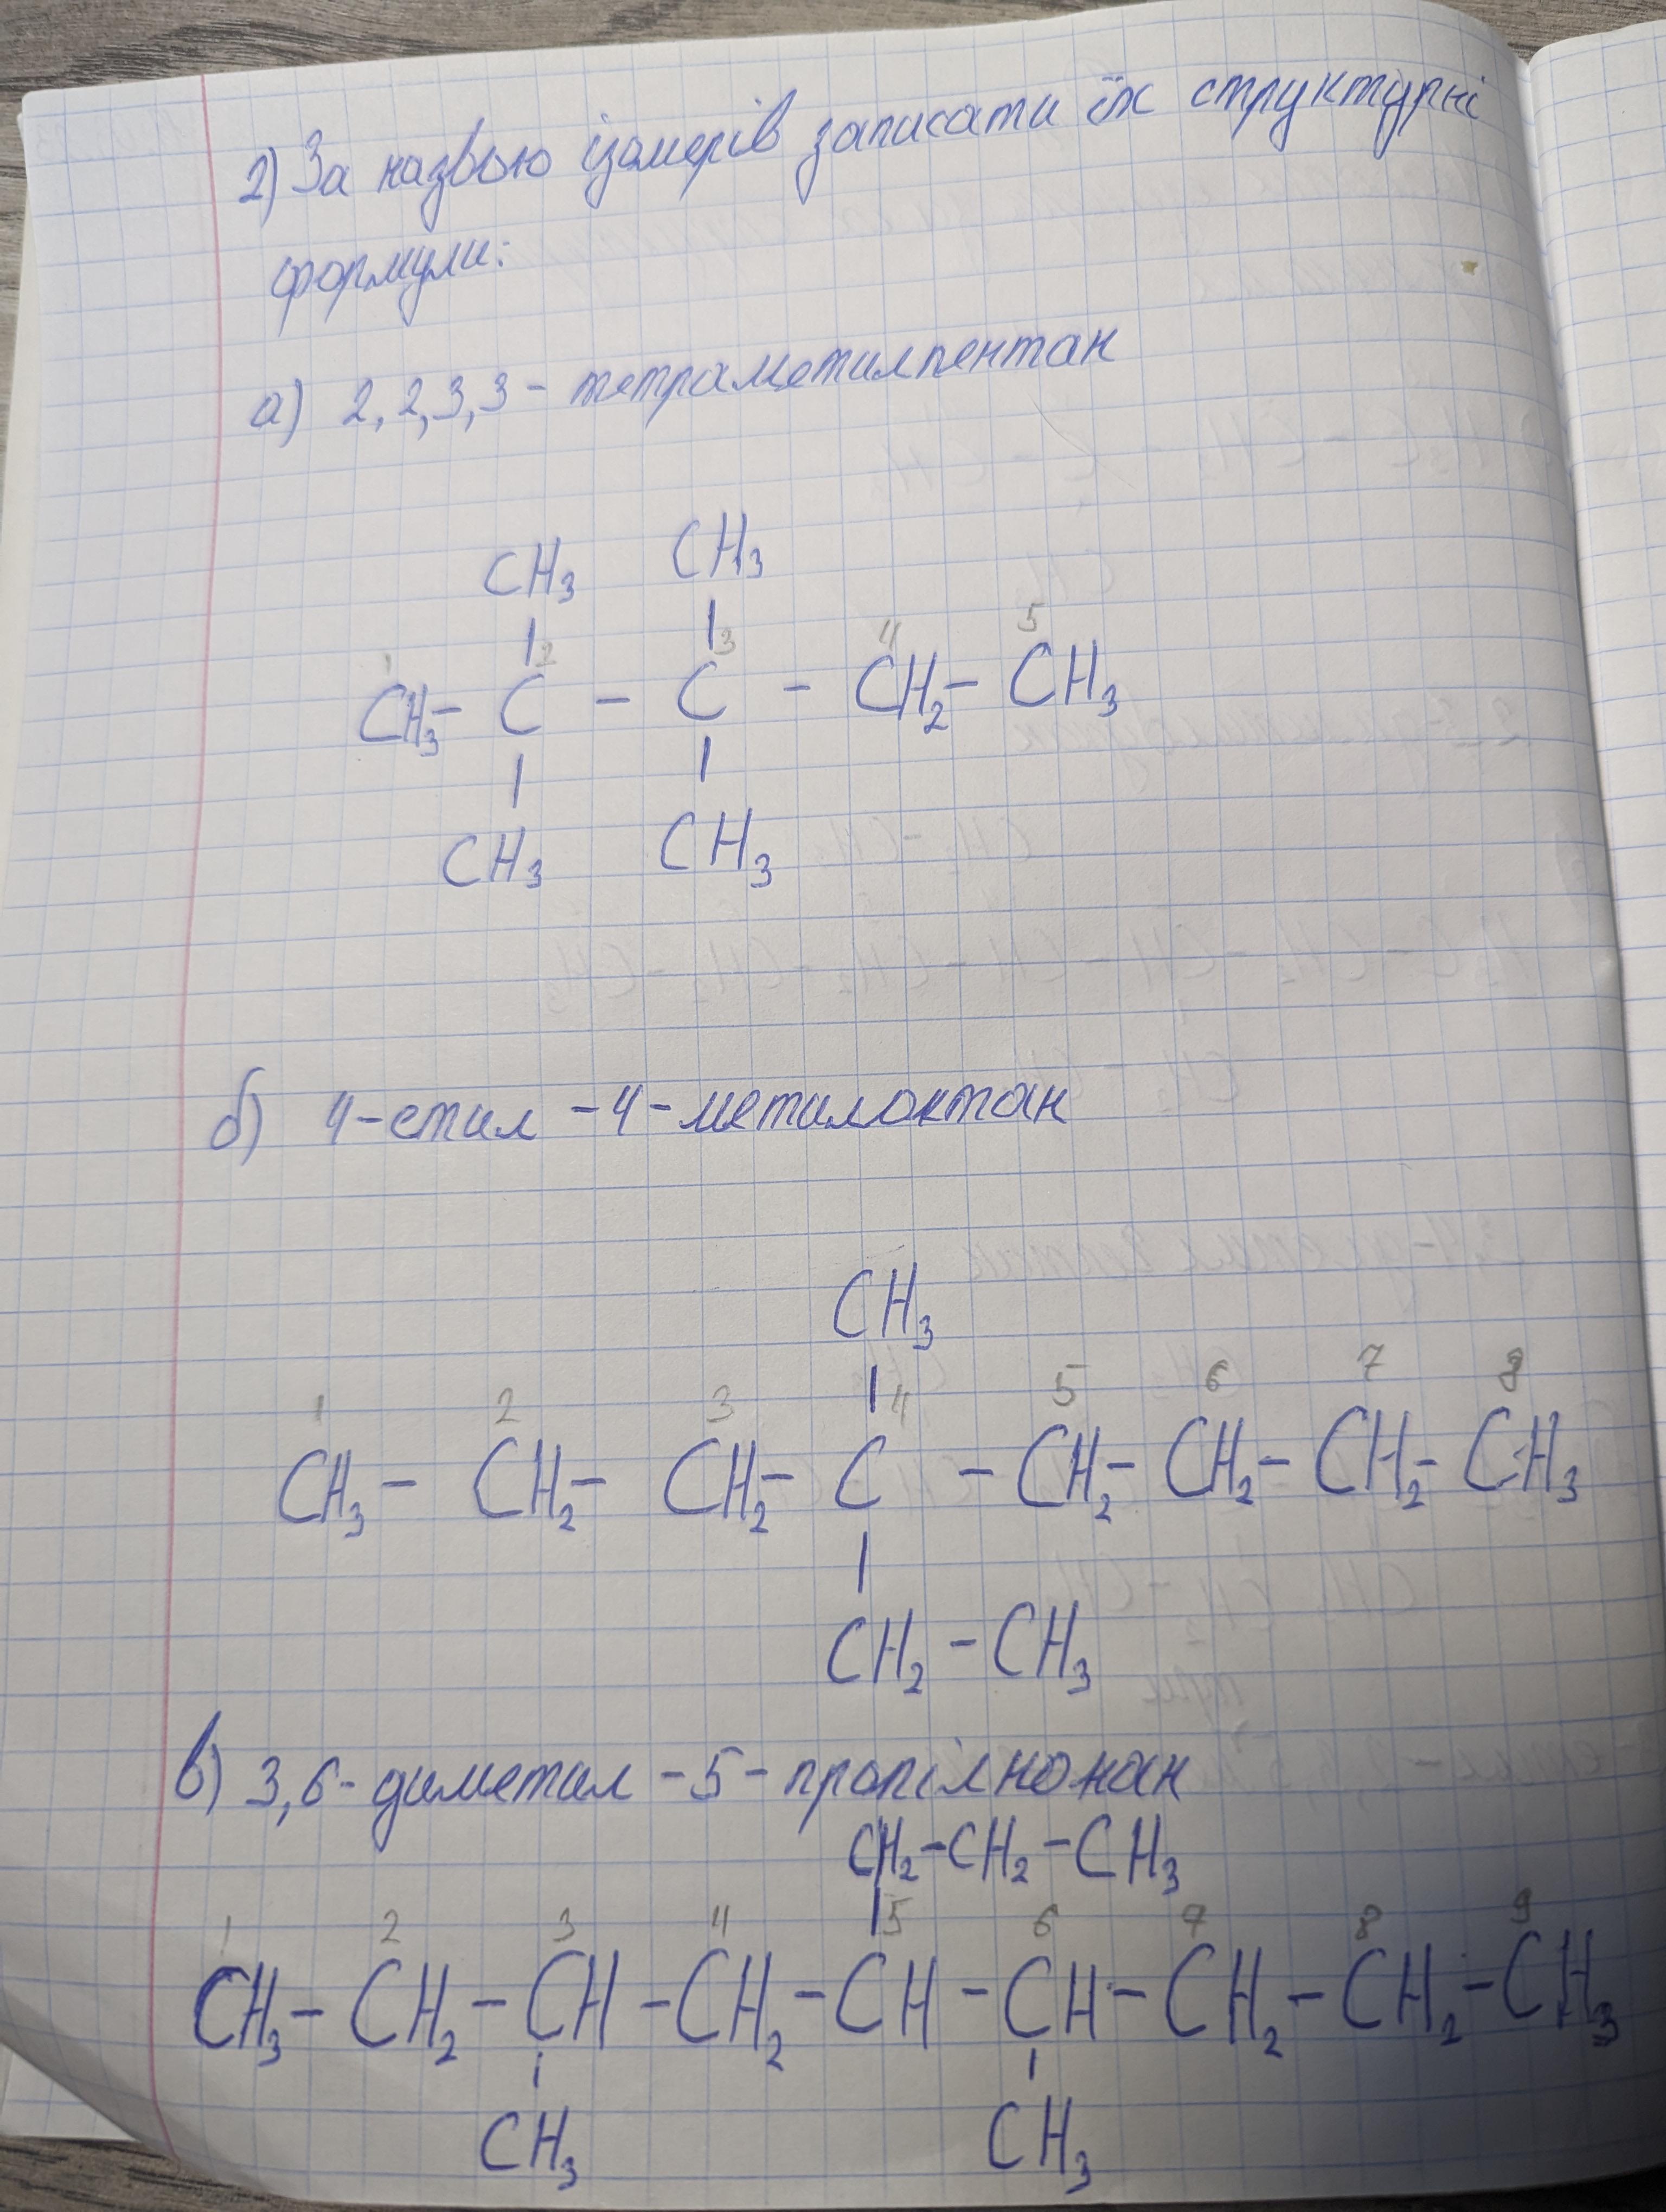 2) За назвою ізомерів записати їх структурні
формули:
а) 2,2,3,3 - тетраметилпентан
CH3 CH3
1 2 3 4 5
CH3 - C - C - CH2 - CH3
CH3 CH3
б) 4-етил -4-метилоктан
CH3
1 2 3 4 5 6 7 8
CH3 - CH2 - CH2 - C - CH2 - CH2 - CH2 - CH3
CH2 - CH3
в) 3,6-диметил -5-пропілнонан
CH2-CH2-CH3
1 2 3 4 5 6 7 8 9
CH3 - CH2 - CH - CH2 - CH - CH - CH2 - CH2 - CH3
CH3 CH3